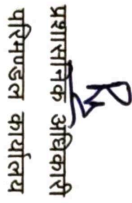 प्रशासनिक अधिकारी
परिमण्डल कार्यालय